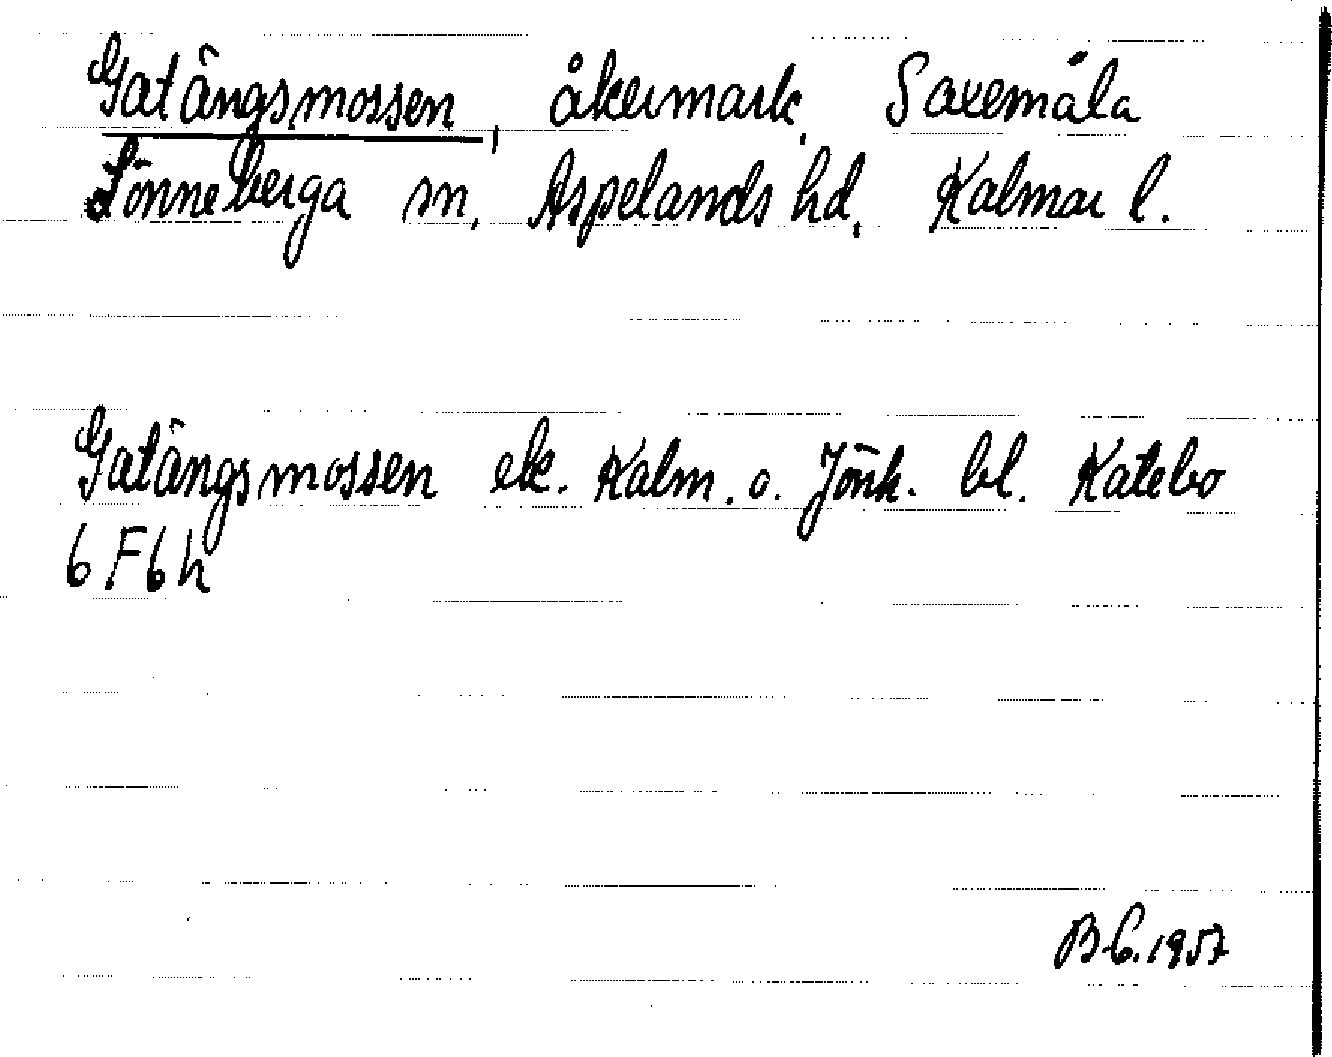 Gatängsmossen, åkermark, Saxemåla
Lönneberga sn, Aspelands hd, Kalmar l.
Gatängsmossen ek. Kalm. o. Jönk. bl. Katebo
6F6h
BC.1957